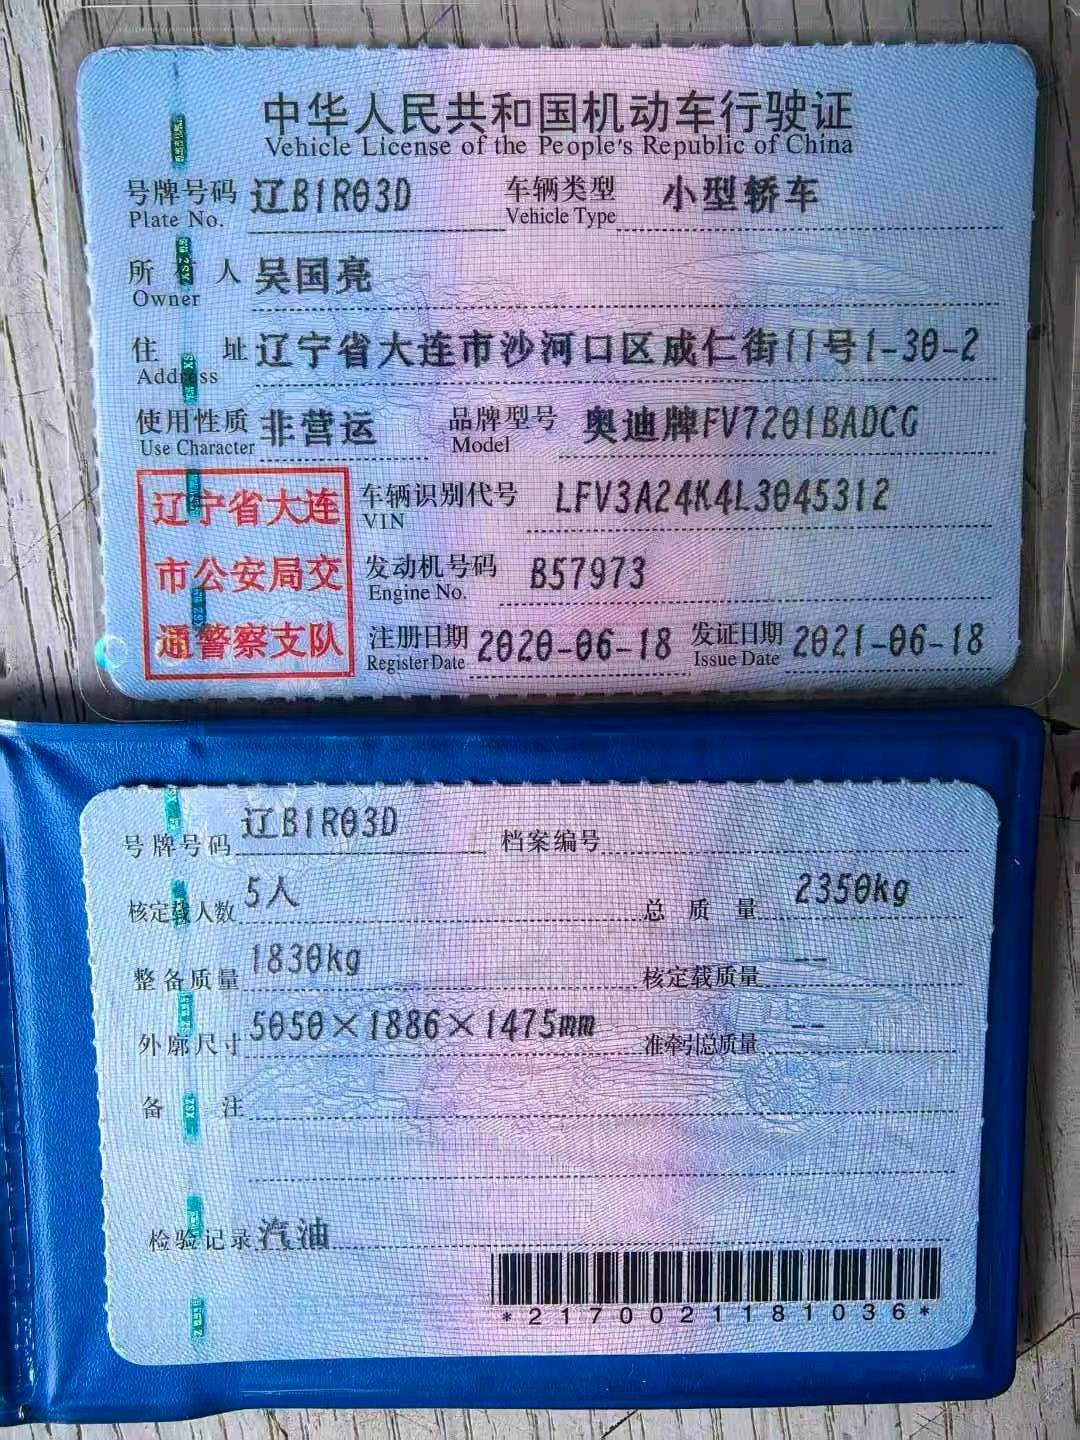 中华人民共和国机动车行驶证
Vehicle License of the People's Republic of China
号牌号码 辽B1R03D 车辆类型 小型轿车
Plate No. Vehicle Type
所 人 吴国亮
Owner
住 址 辽宁省大连市沙河口区成仁街11号1-30-2
Address
使用性质 非营运 品牌型号 奥迪牌FV7201BADCG
Use Character Model
辽宁省大连
市公安局交
通警察支队
车辆识别代号 LFV3A24K4L3045312
VIN
发动机号码 B57973
Engine No.
注册日期 2020-06-18 发证日期 2021-06-18
Register Date Issue Date
号牌号码 辽B1R03D 档案编号
核定载人数 5人 总质量 2350kg
整备质量 1830kg 核定载质量 --
外廓尺寸 5050×1886×1475mm 准牵引总质量 --
备 注
检验记录 汽油
*2170021181036*